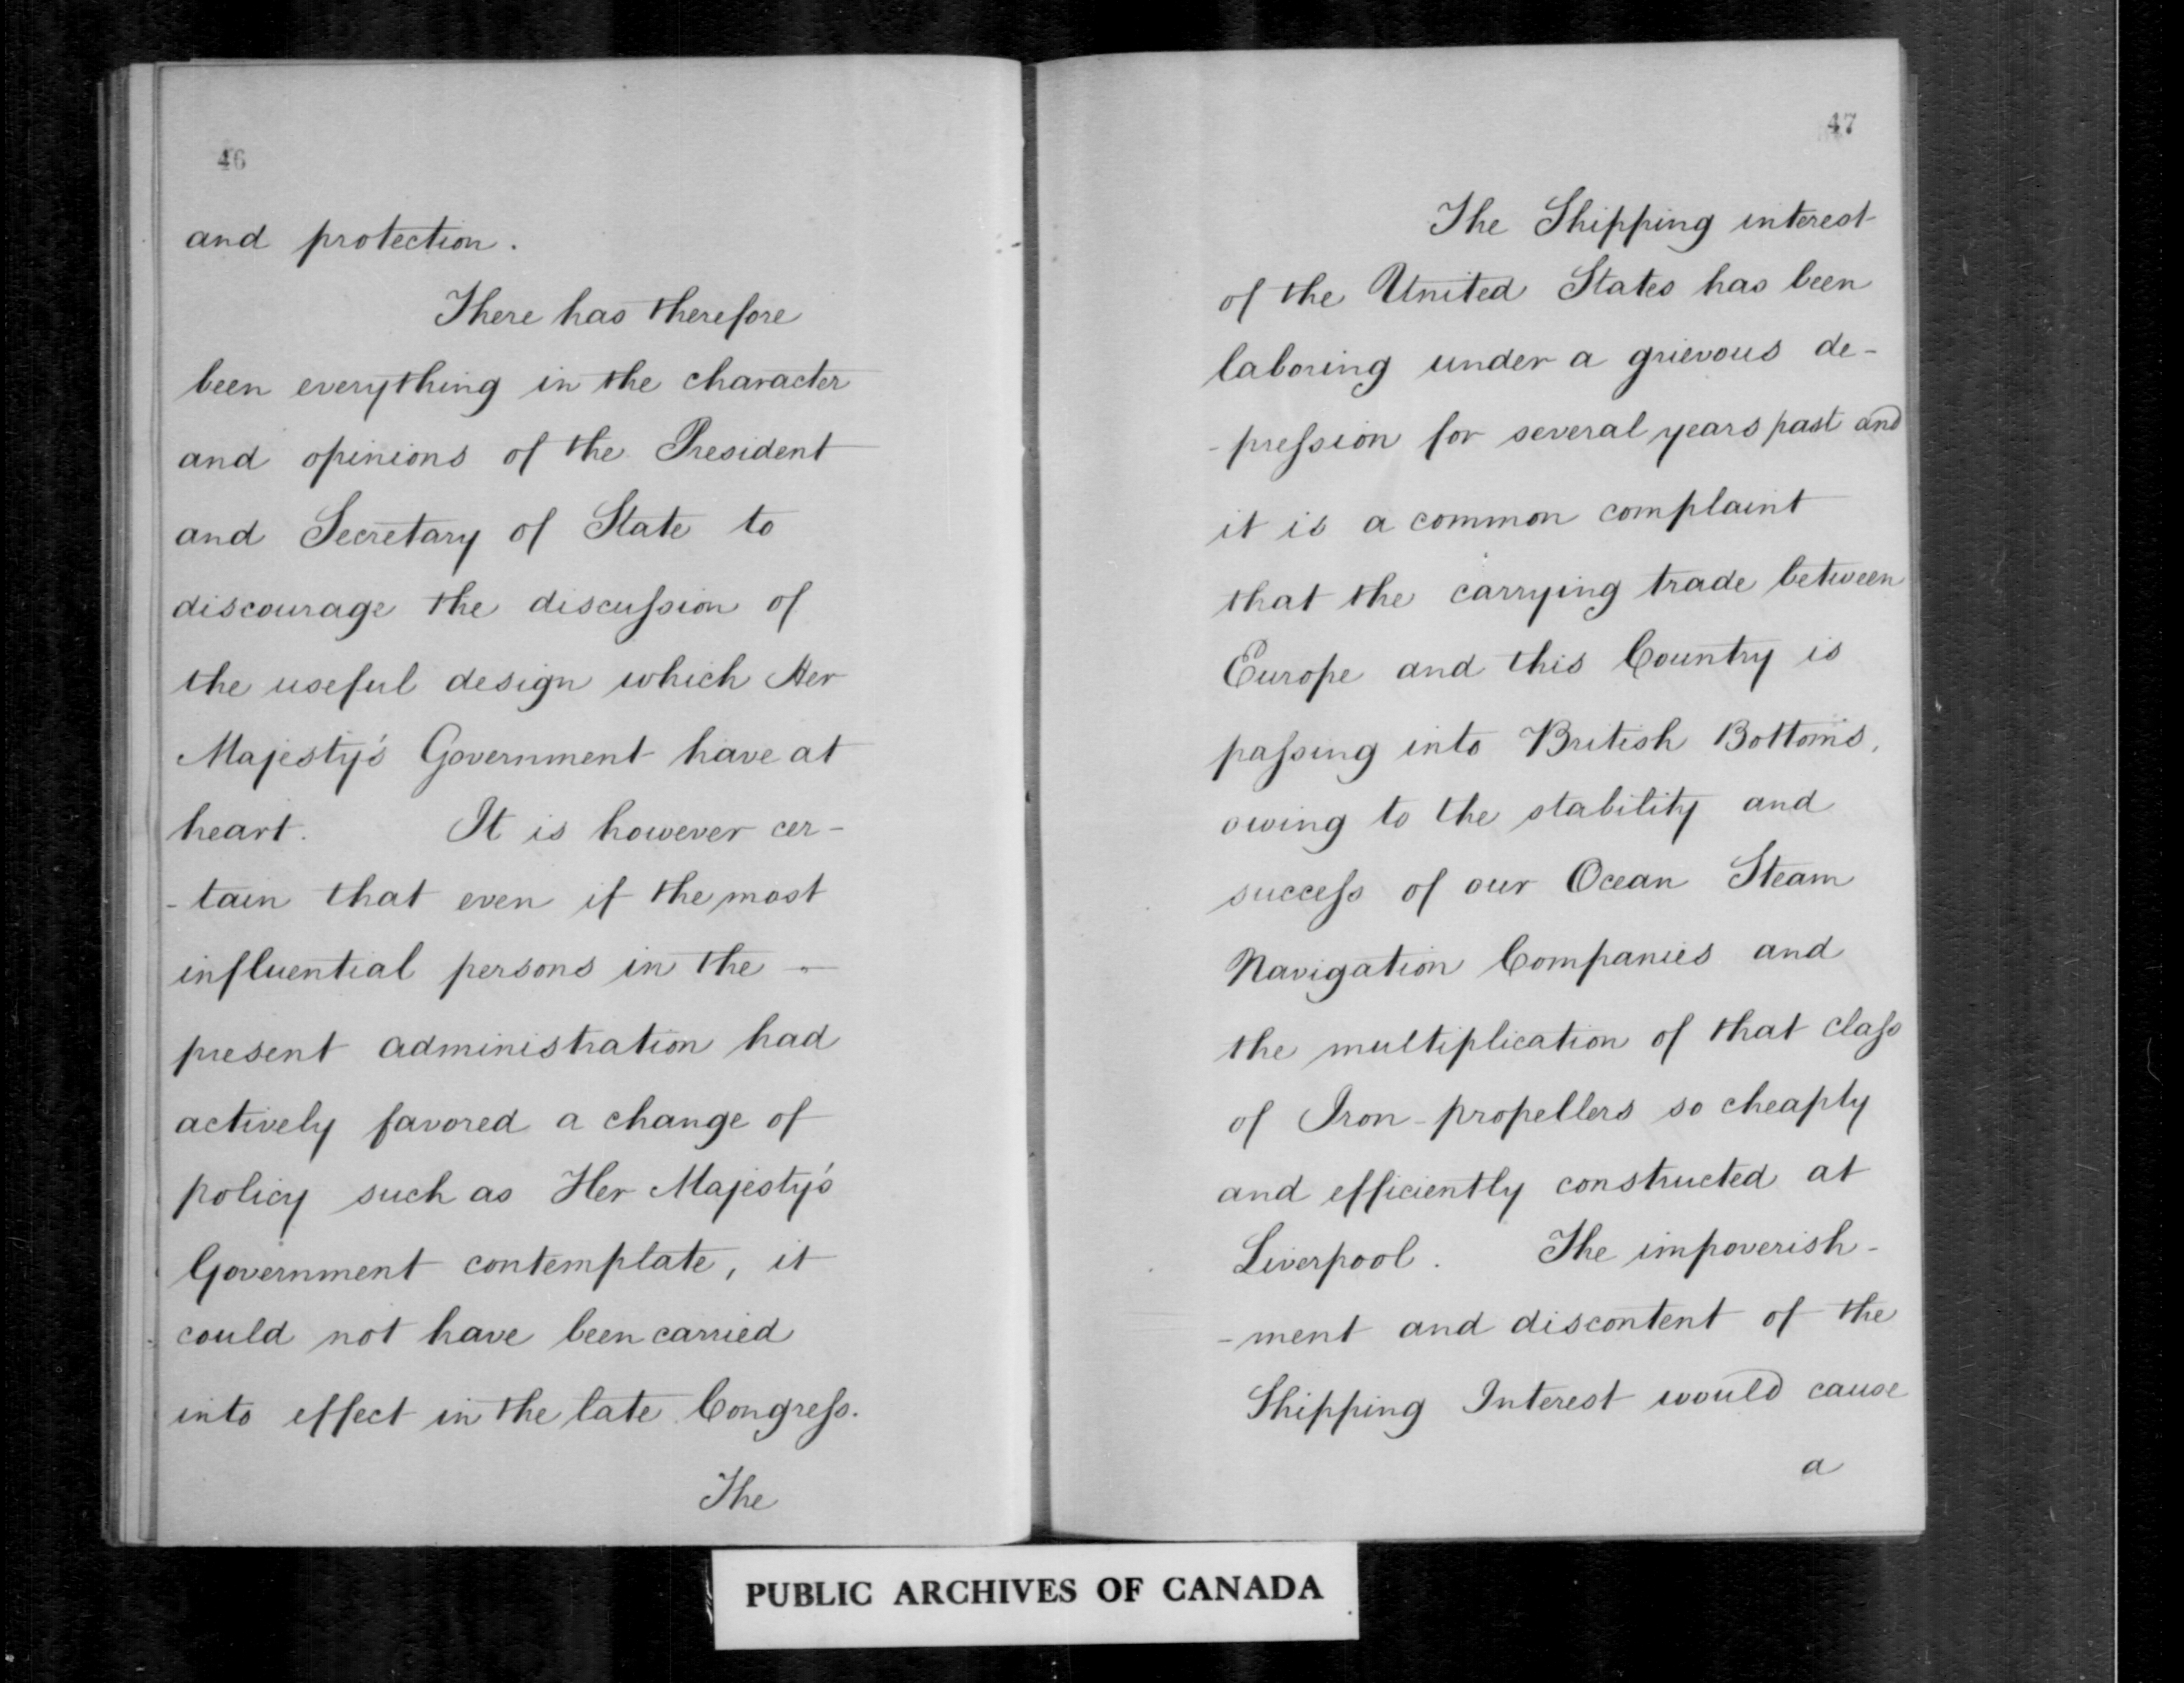 46
and protection.
There has therefore
been everything in the character
and opinions of the President
and Secretary of State to
discourage the discussion of
the useful design which Her
Majesty's Government have at
heart. It is however cer-
-tain that even if the most
influential persons in the
present administration had
actively favored a change of
policy such as Her Majesty's
Government contemplate, it
could not have been carried
into effect in the late Congress.
The
47
The Shipping interest
of the United States has been
laboring under a grievous de-
-pression for several years past and
it is a common complaint
that the carrying trade between
Europe and this Country is
passing into British Bottoms,
owing to the stability and
success of our Ocean Steam
Navigation Companies and
the multiplication of that class
of Iron-propellers so cheaply
and efficiently constructed at
Liverpool. The impoverish-
-ment and discontent of the
Shipping Interest would cause
a
PUBLIC ARCHIVES OF CANADA